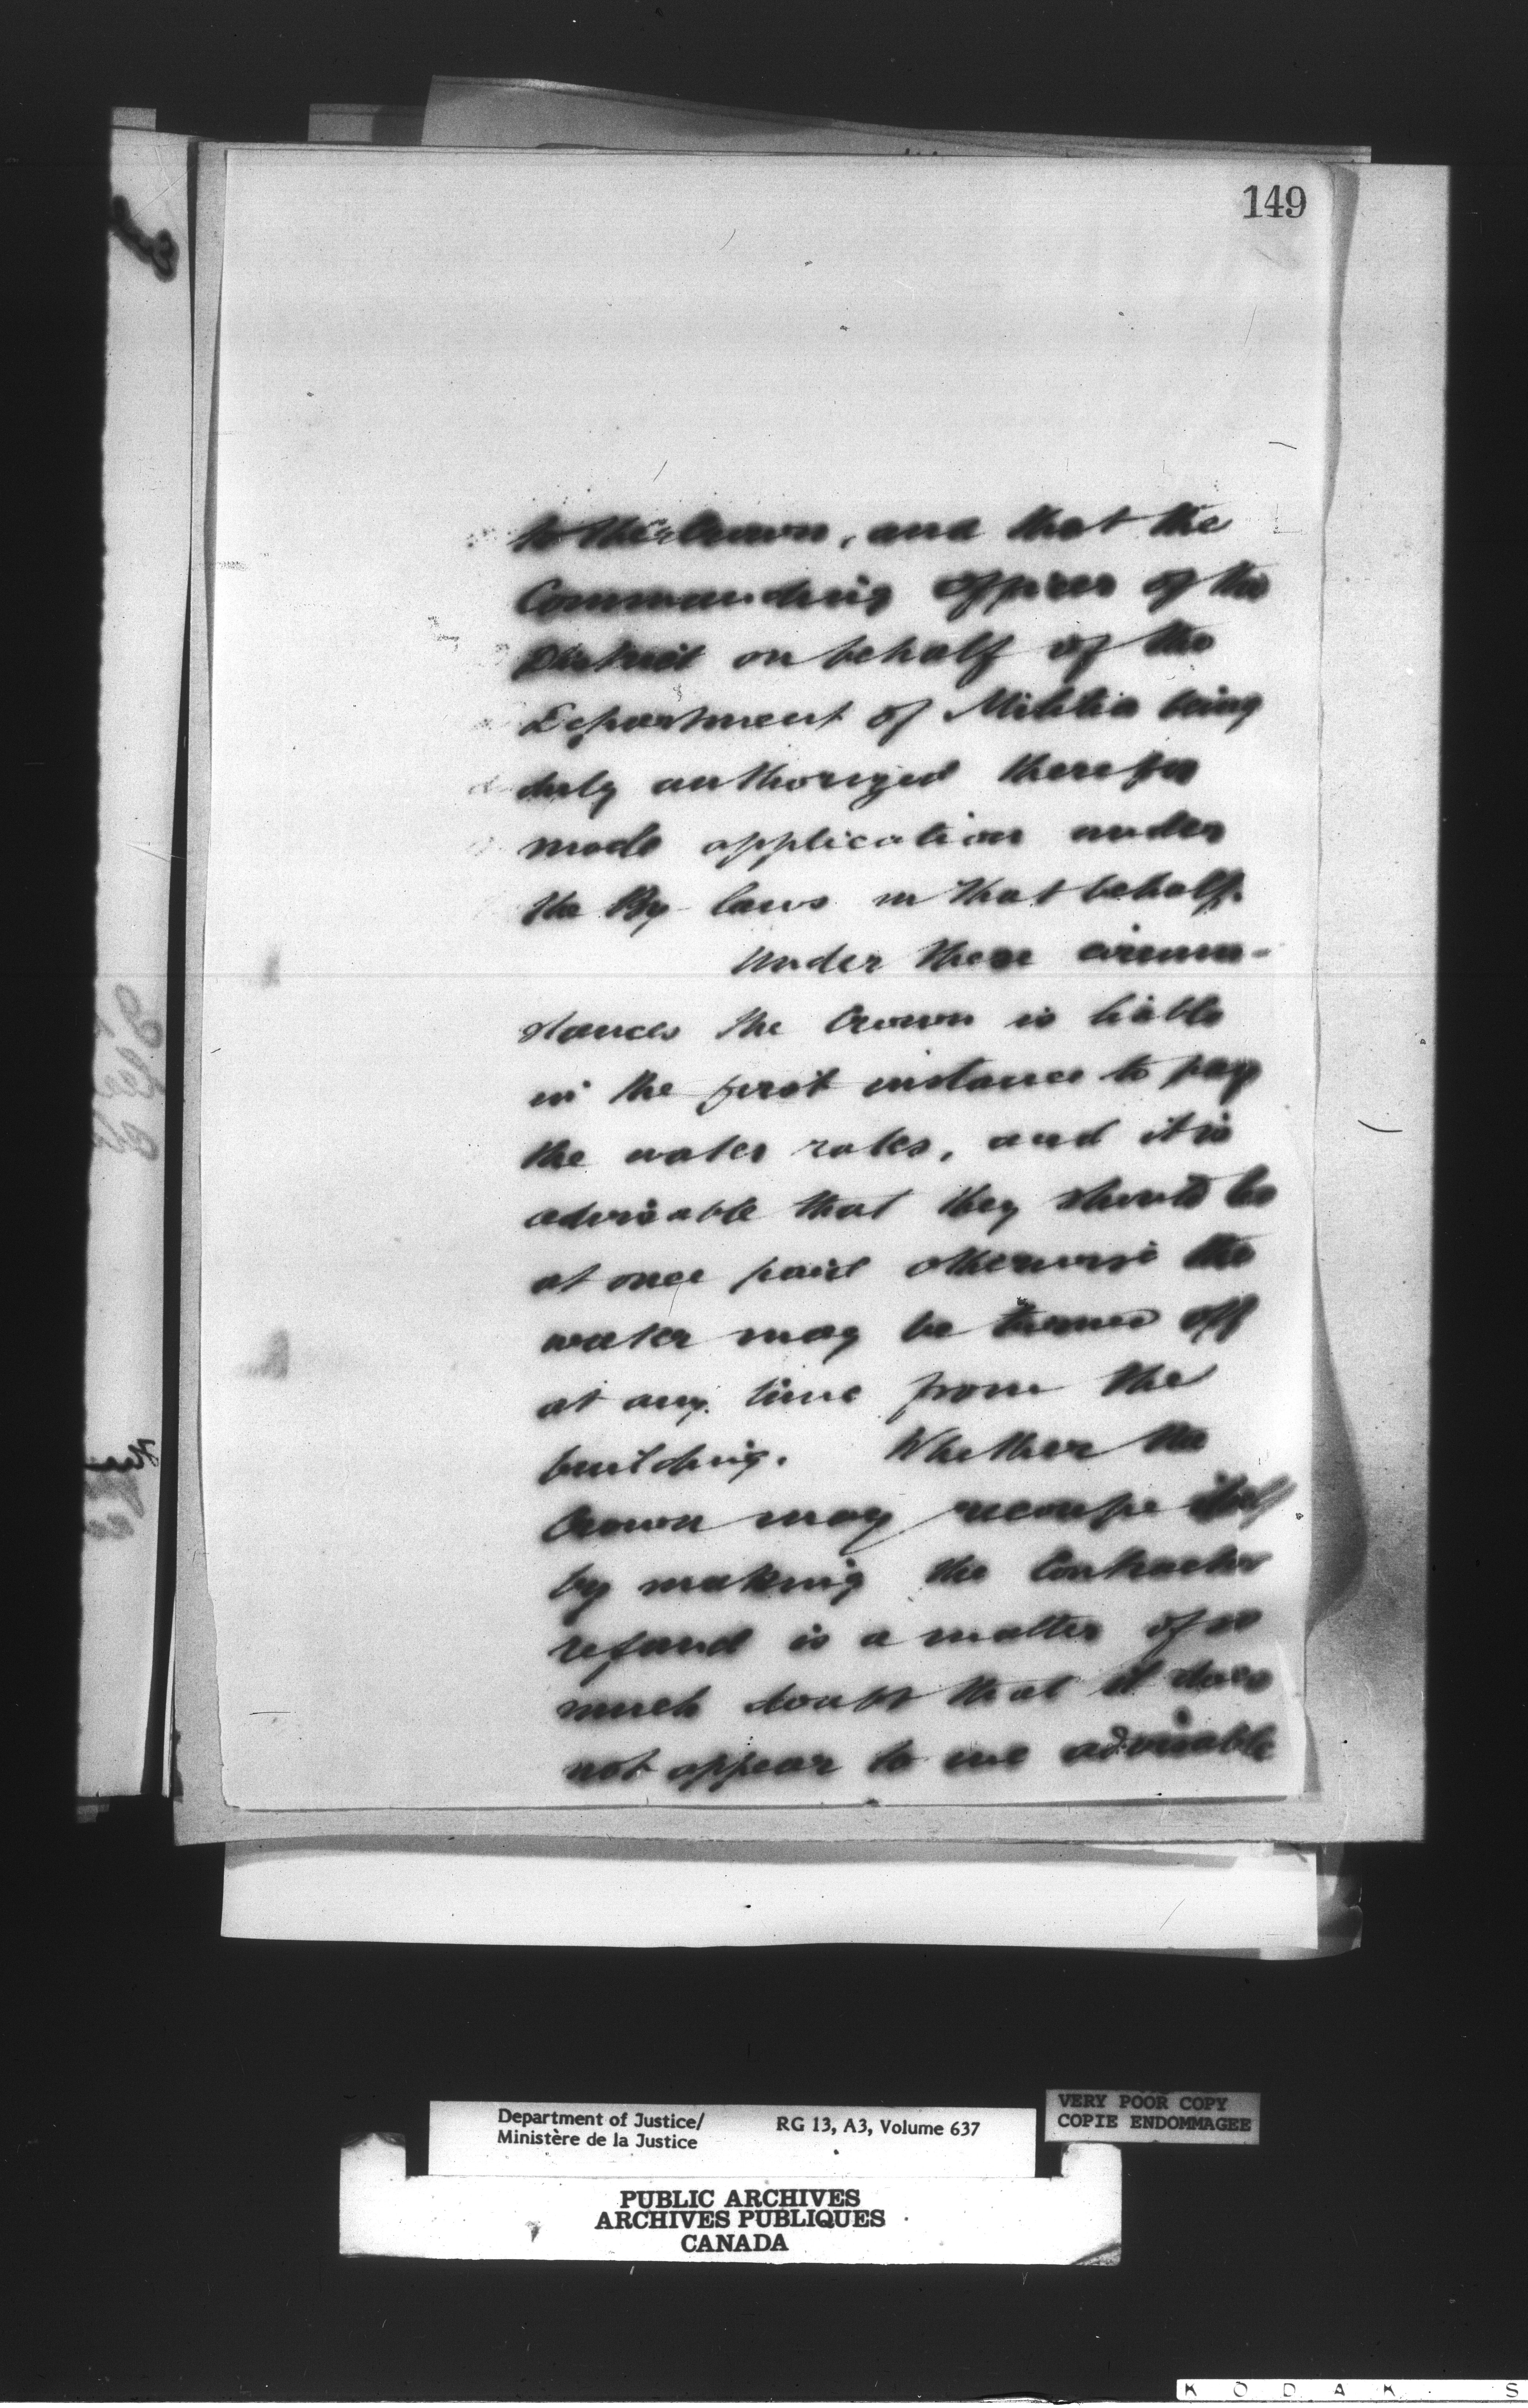 149
to the Crown, and that the
Commanding Officer of the
District on behalf of the
Department of Militia being
duly authorized therefor
made application under
the By-laws in that behalf.
Under these circum-
stances the Crown is liable
in the first instance to pay
the water rates, and it is
advisable that they should be
at once paid otherwise the
water may be turned off
at any time from the
building. Whether the
Crown may recoupe itself
by making the Contractor
refund is a matter of so
much doubt that it does
not appear to me advisable
Department of Justice/
Ministère de la Justice
RG 13, A3, Volume 637
VERY POOR COPY
COPIE ENDOMMAGEE
PUBLIC ARCHIVES
ARCHIVES PUBLIQUES
CANADA
KODAK S